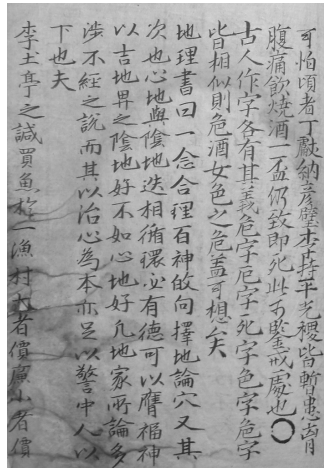 可怕頃者丁獻納彥璧李持平光稷皆暫患胷
腹痛飮燒酒一盃仍致卽死此可鑒戒處也〇
古人作字各有其義危字巵字死字色字危字
皆相似則危酒女色之危盖可想矣夫
地理書曰一念合理百神啟向擇地論穴又其
次也心地與陰地迭相循環必有德可以膺福神
以吉地畀之陰地好不如心地好凡地家所論多
涉不經之說而其以治心爲本亦足以警中人以
下也夫
李土亭之諴買魚於一漁村大者價廉小者價